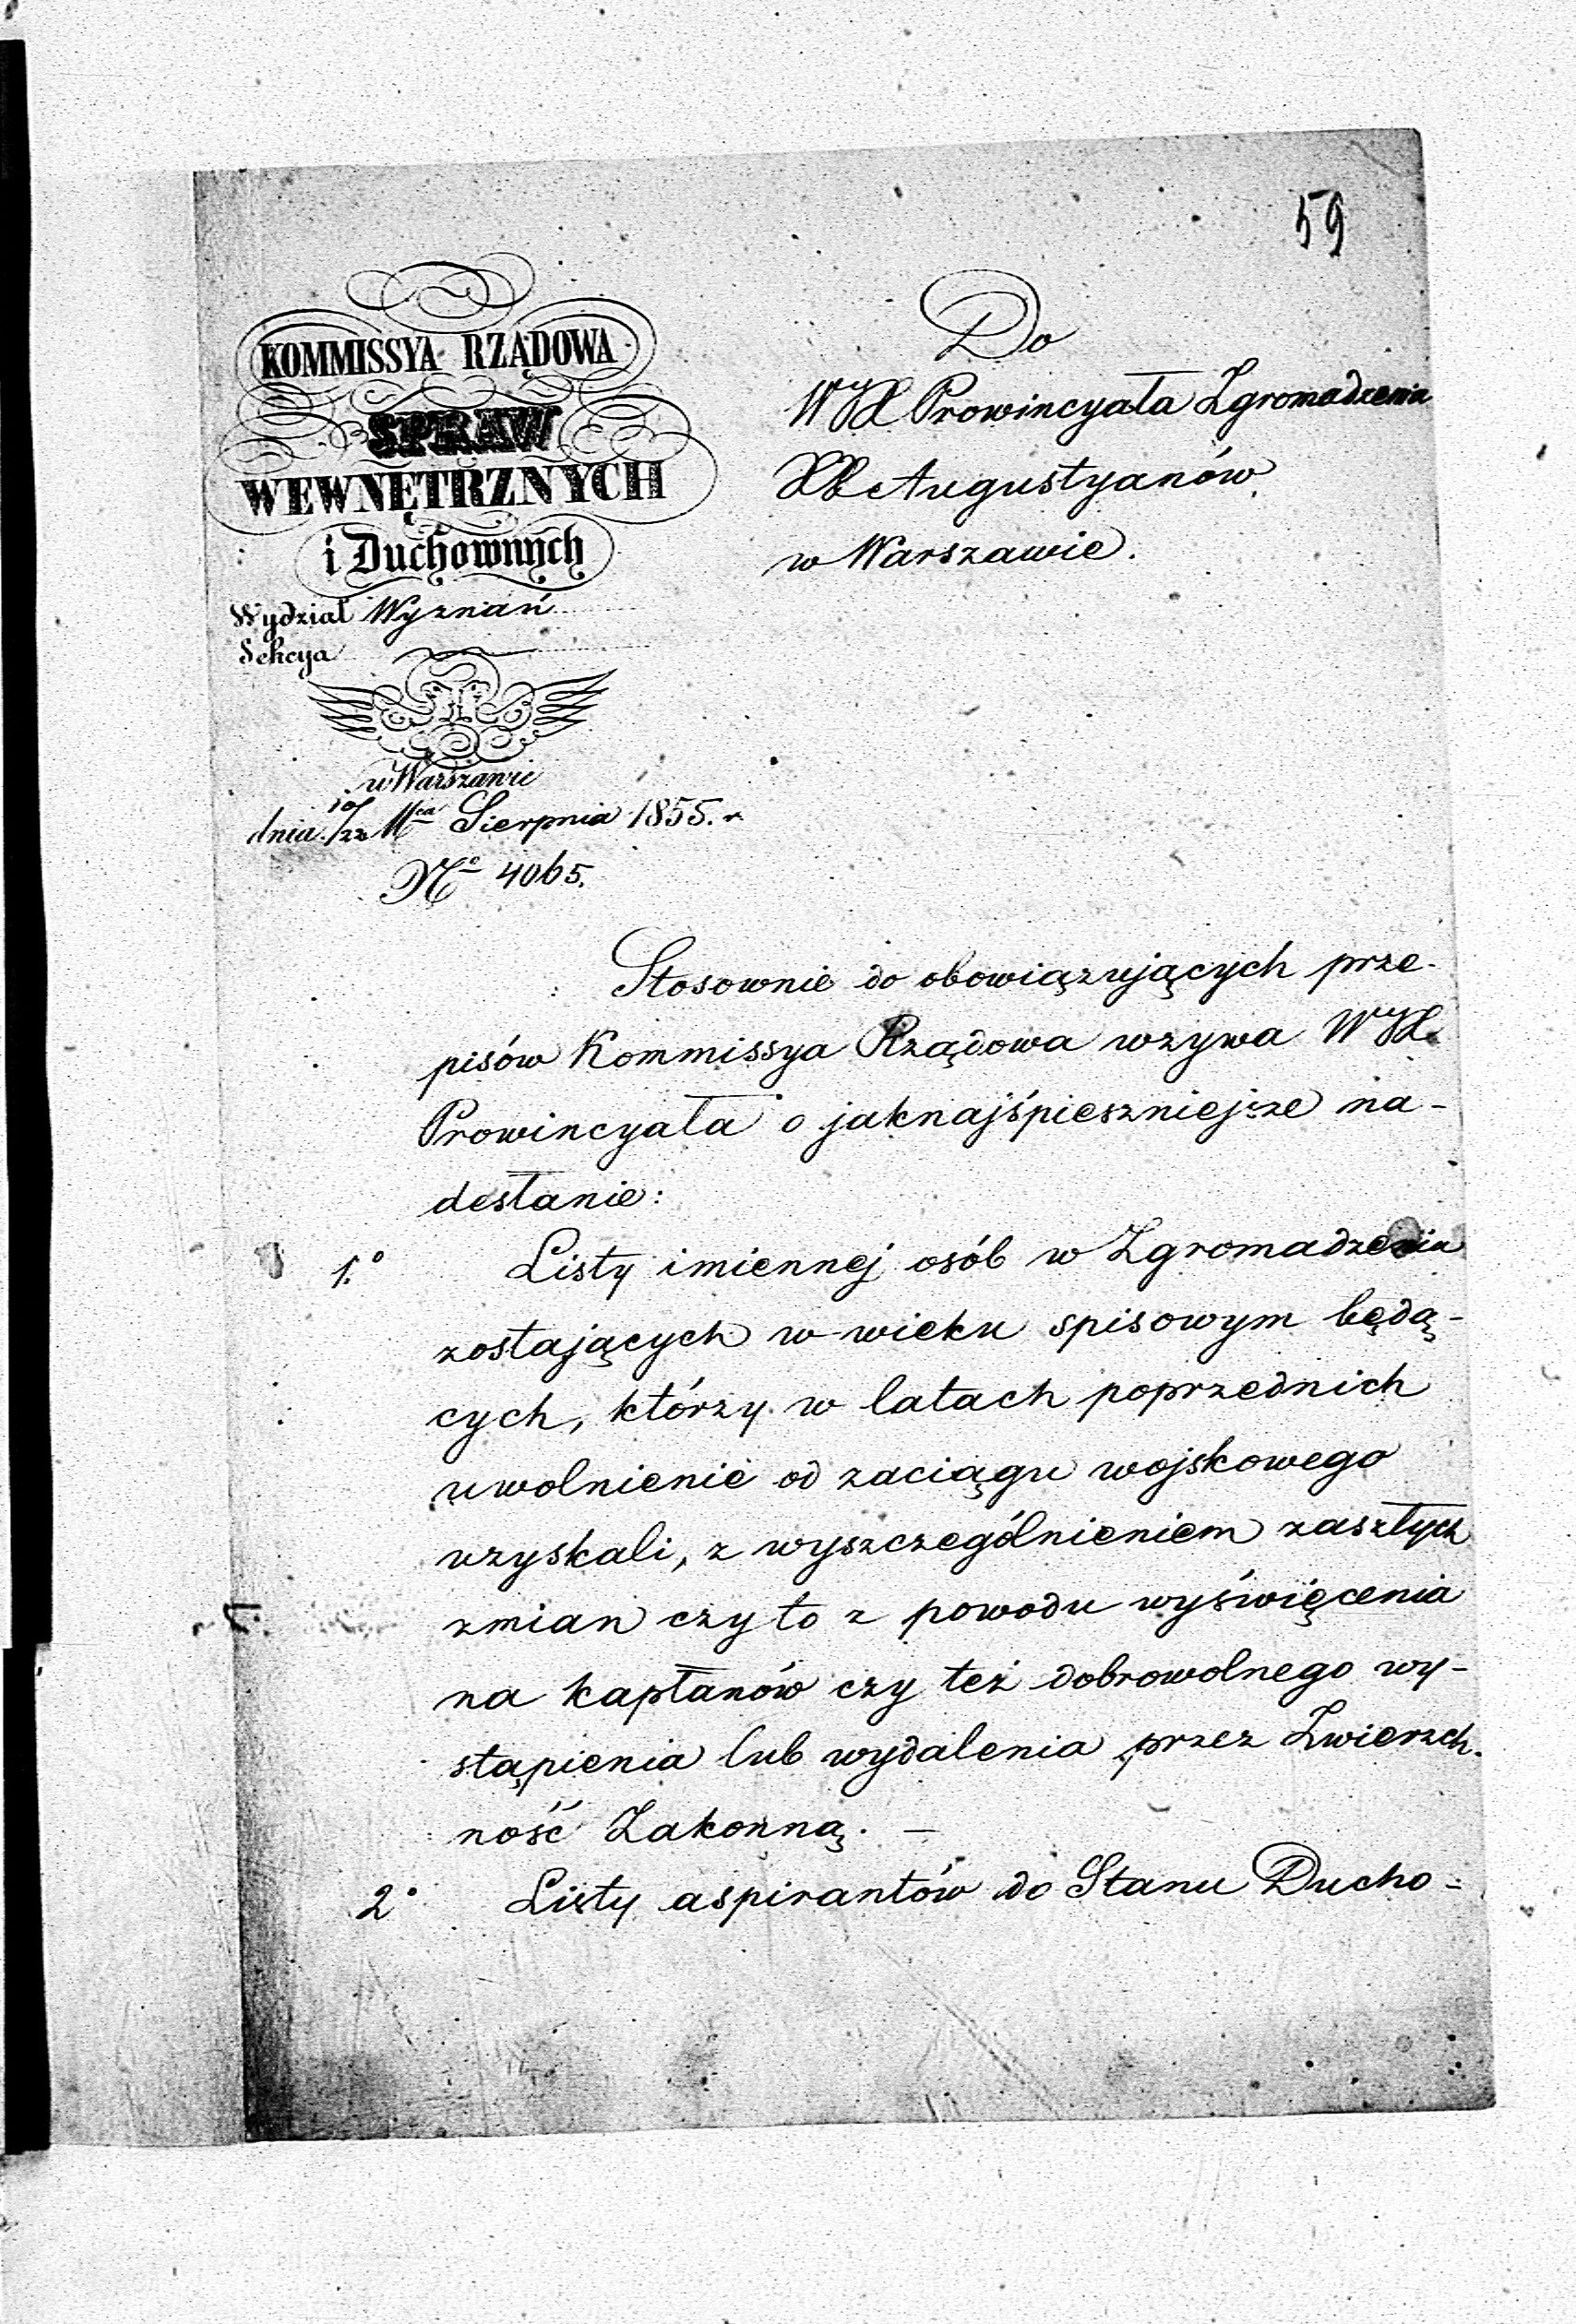 59
KOMMISSYA RZĄDOWA
SPRAW
WEWNĘTRZNYCH
i Duchownych
Wydział Wyznań
Sekcya
w Warszawie
dnia 10/22 Mca Sierpnia 1855. r.
No 4065.
Do
WJX Prowincyała Zgromadzenia
XX Augustyanów
w Warszawie.
Stosownie do obowiązujących prze-
pisów Kommissya Rządowa wzywa WJX.
Prowincyała o jaknajśpieszniejsze na-
desłanie:
1.° Listy imiennej osób w Zgromadzeniu
zostających w wieku spisowym będą-
cych, którzy w latach poprzednich
uwolnienie od zaciągu wojskowego
uzyskali, z wyszczególnieniem zaszłych
zmian czy to z powodu wyświęcenia
na kapłanów czy też dobrowolnego wy-
stąpienia lub wydalenia przez Zwierzch-
ność Zakonną. —
2° Listy aspirantów do Stanu Ducho-